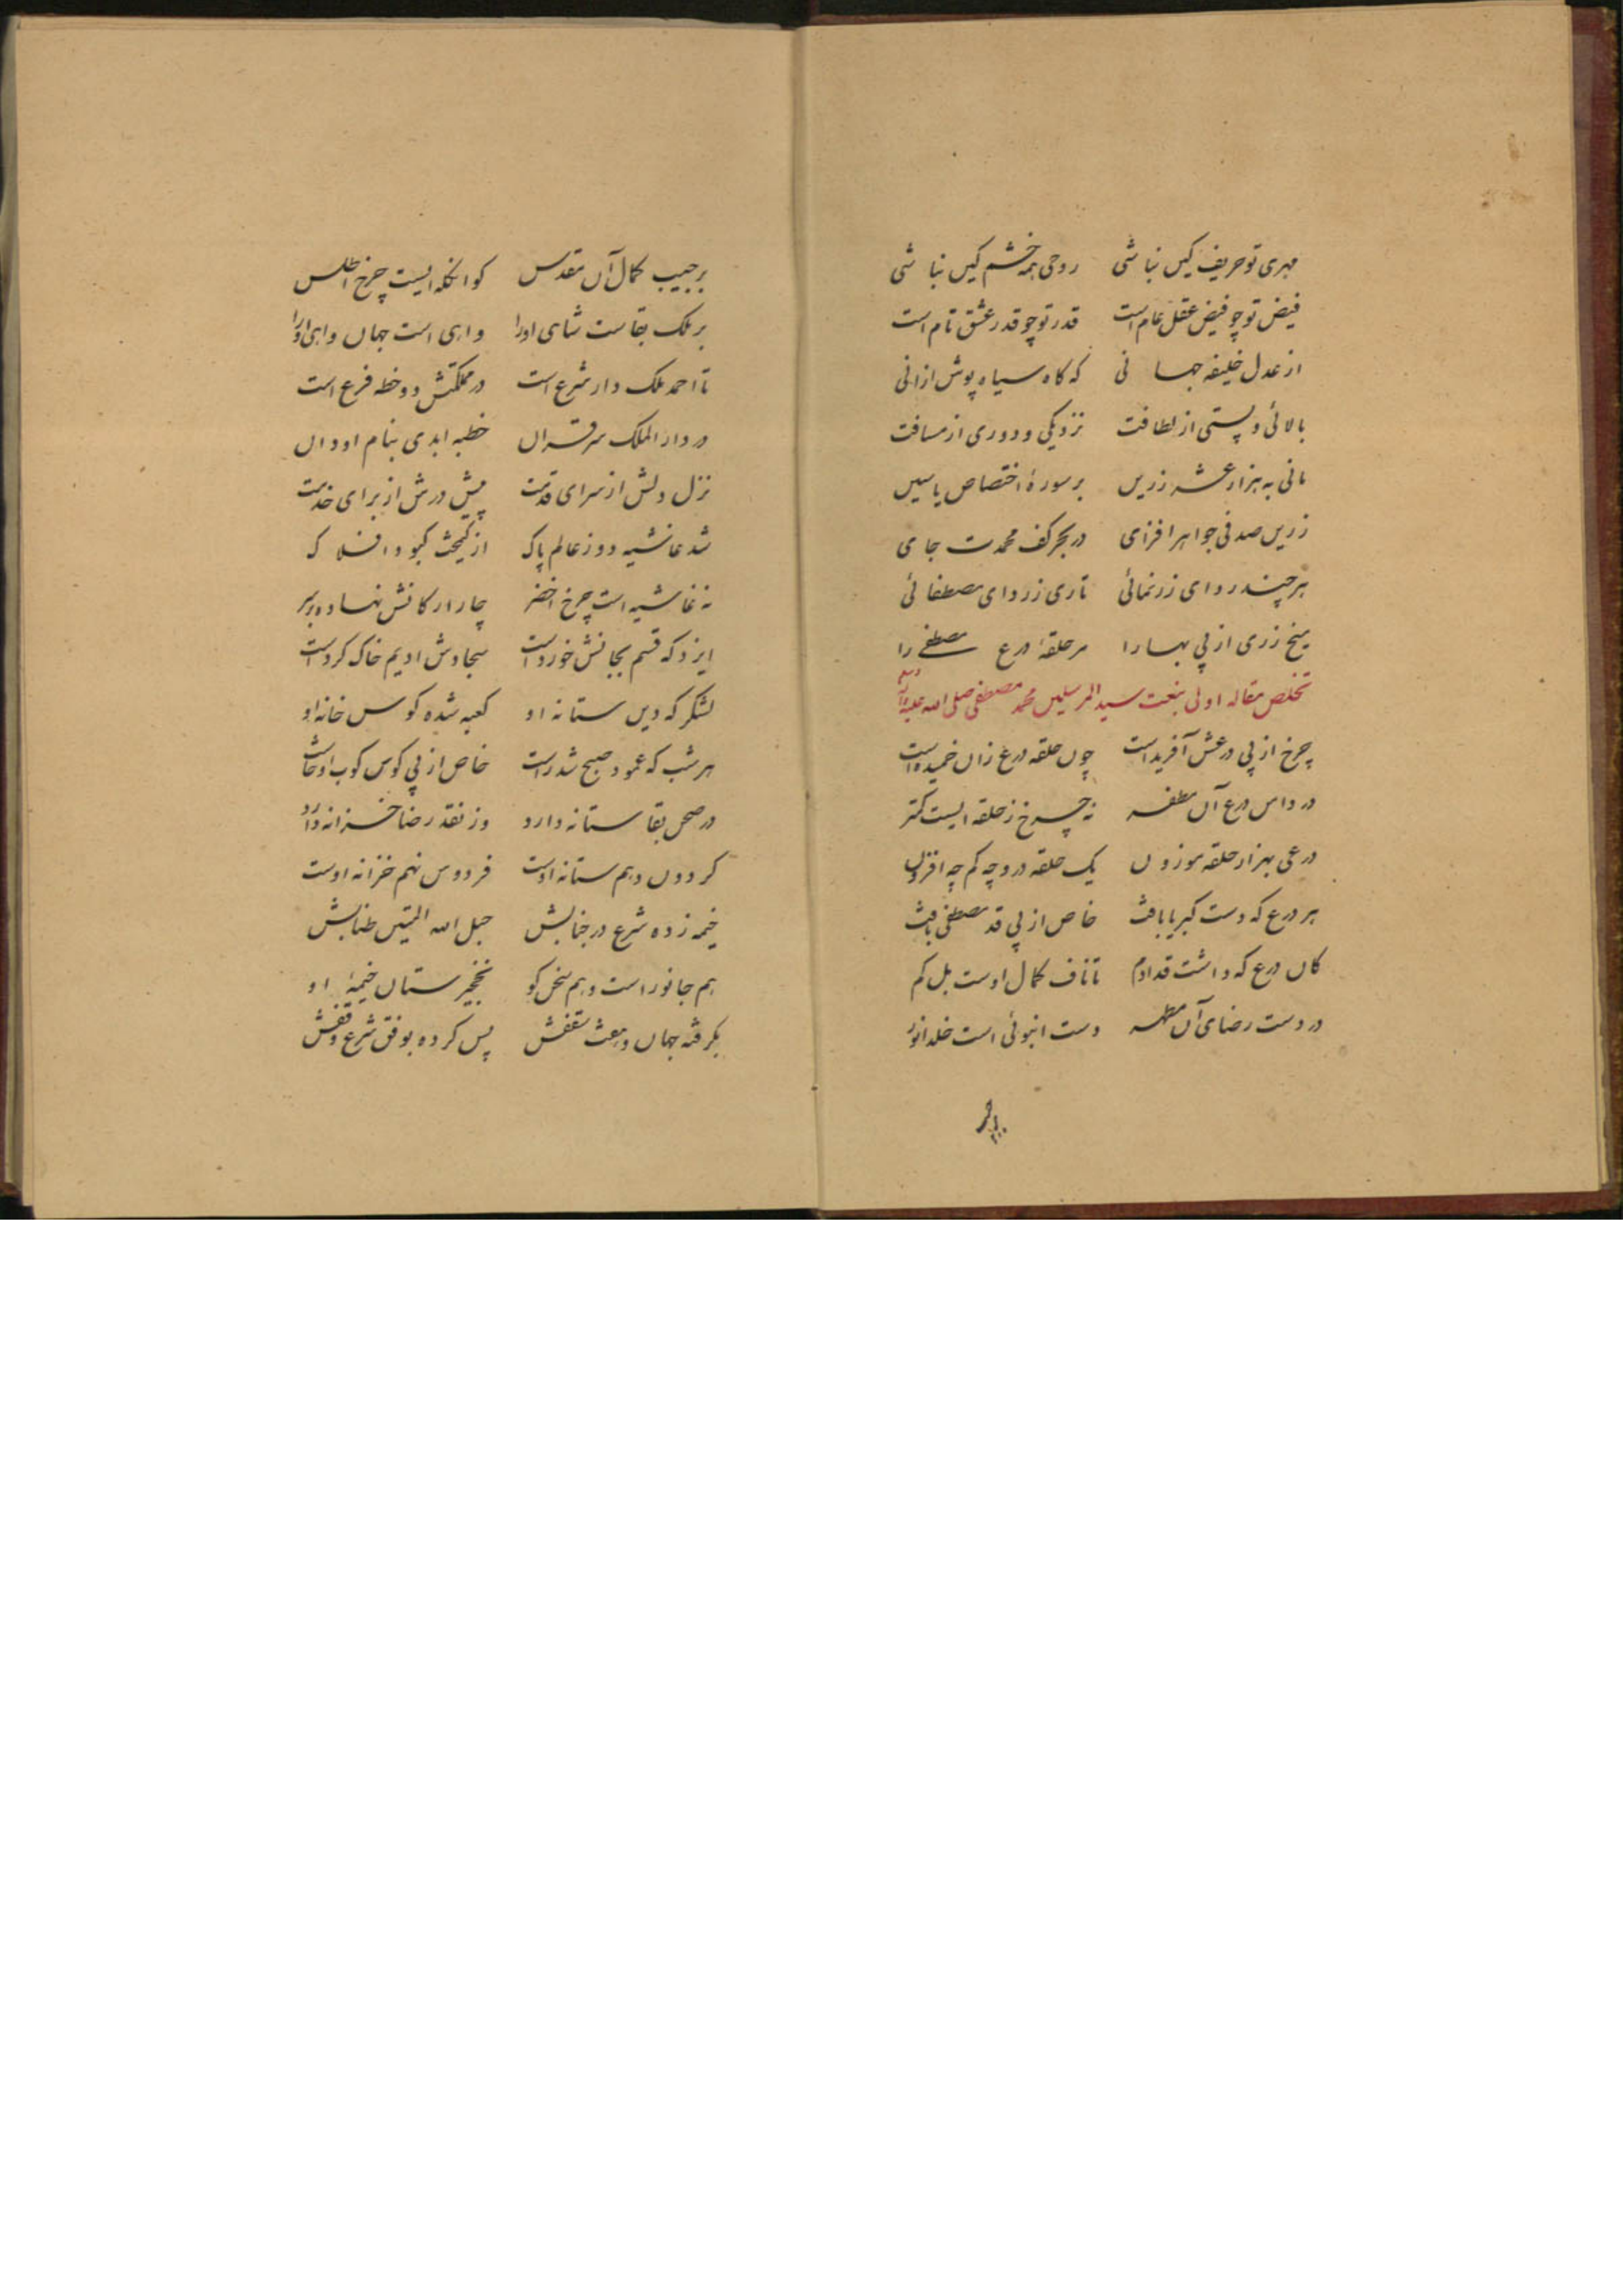 مهری تو حریف کیں نباشی روحی همه خشم کیں نباشی
فیض تو چو فیض عقل عام است قدر تو چو قدر عشق تام است
از عدل خلیفه جهانی که گاه سیاه پوش ازانی
بالائی و پستی از لطافت نزدیکی و دوری از مسافت
مانی به هزار عشر زریں بر سورهٔ اختصاص یاسیں
زریں صدفی جواهر افزای در بحر کف محمدت جای
هر چند ردای زر نمائی تاری ز ردای مصطفائی
میخ زری از پی بها را مر حلقهٔ درع مصطفے را
تخلص مقاله اولی بنعت سید المرسلیں محمد مصطفی صلی الله علیه وآله وسلم
چرخ از پی درعش آفریداست چوں حلقه درع زاں خمیده است
در دامن درع آں مظفر نه چرخ ز حلقه ایست کمتر
درعی بهزار حلقه موزوں یک حلقه درو چه کم چه افزوں
هر درع که دست کبریا بافت خاص از پی قد مصطفی بافت
کاں درع که داشت قد ادم تا ناف کمال اوست بل کم
در دست رضای آں مطهر دست انبوئی است خلد انور
بر جیب کمال آں مقدس کو انکله ایست چرخ اطلس
بر ملک بقاست شاهی اورا واهی است جهاں واهی اورا
تا احمد ملک دار شرع است در مملکتش دو خطه فرع است
در دار الملک سر قراں خطبه ابدی بنام او داں
نزل دلش از سرای قدمت پیش درش از برای خدمت
شد غاشیه دوز عالم پاک از کیمخت کبود افلاک
نه غاشیه است چرخ اخضر چار ارکانش نهاده بر سر
ایزد که قسم بجانش خورد است سجادش ادیم خاک کرد است
لشکر که دیں ستانه او کعبه شده کوس خانه او
هر شب که عمود صبح شد راست خاص از پی کوس کوب او خاست
در صحن بقا ستانه دارد وز نقد رضا خزانه دارد
گردوں دهم ستانه اوست فردوس نهم خزانه اوست
خیمه زده شرع در جنابش حبل الله المتیں طنابش
هم جانور است و هم سخن گو نخجیرستاں خیمهٔ او
بگرفته جهاں دبعث سقفش پس کرده بوفق شرع وقفش